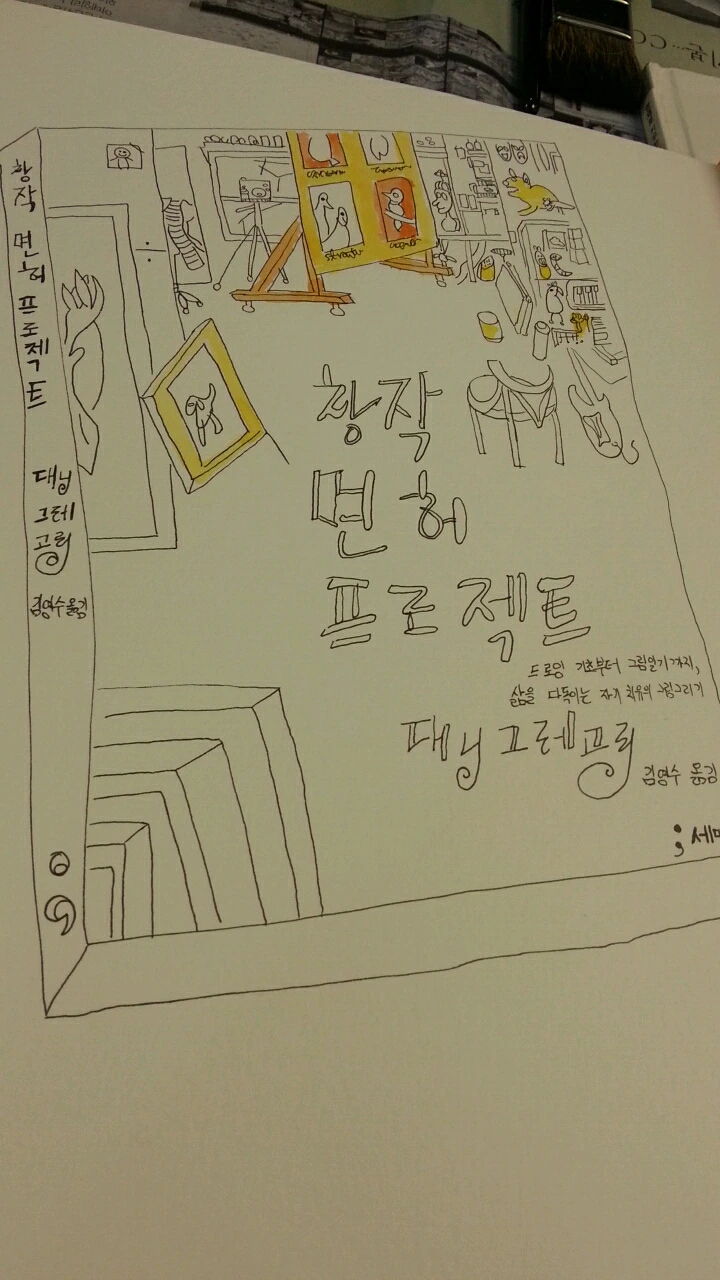 창작 면허 프로젝트
대니
그레
고리
김영수 옮김
창작
면허
프로젝트
드로잉 기초부터 그림일기까지,
삶을 다독이는 자기 치유의 그림그리기
대니 그레고리
김영수 옮김
; 세미